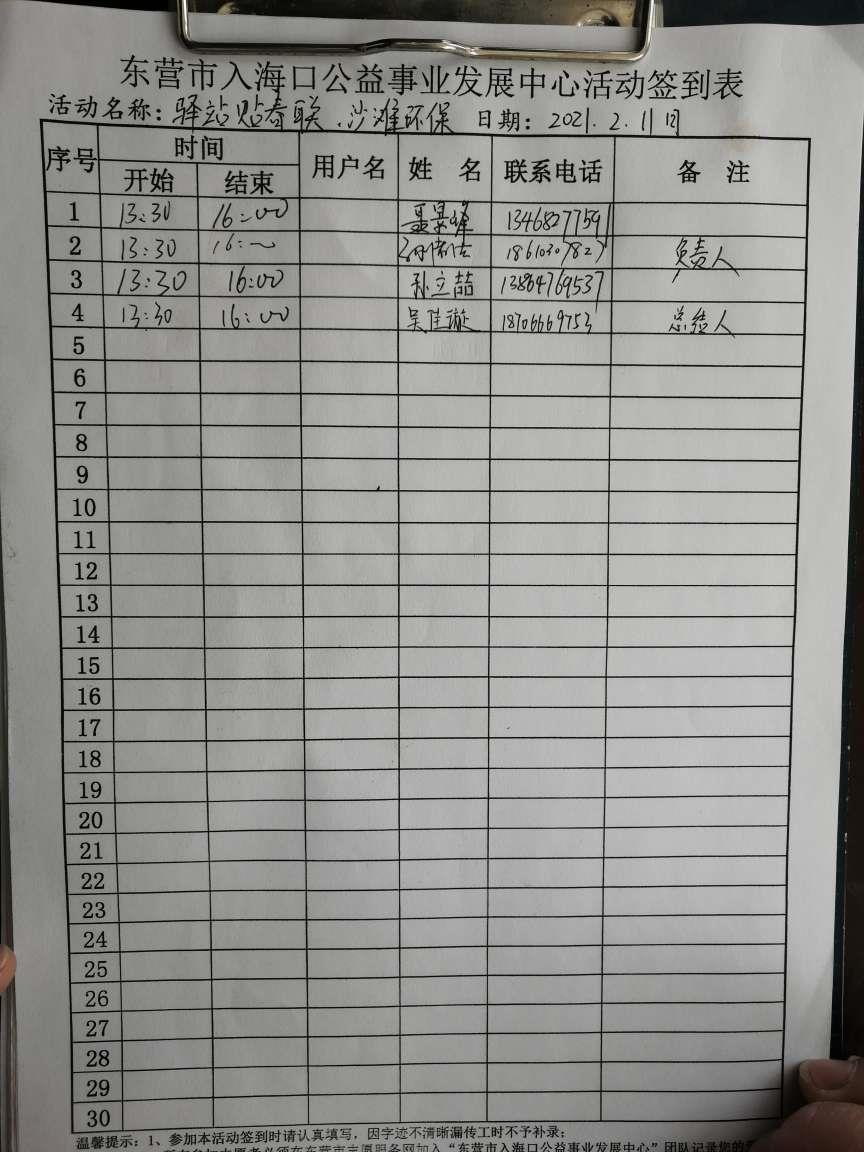 东营市入海口公益事业发展中心活动签到表
活动名称：驿站贴春联、沙滩环保 日期：2021.2.11日
序号 时间 用户名 姓 名 联系电话 备 注
开始 结束
1 13:30 16:00 13468277591
2 13:30 16: 18610307827 负责人
3 13:30 16:00 孙立喆 13864769537
4 13:30 16:00 吴佳璇 18706669753 总结人
5
6
7
8
9
10
11
12
13
14
15
16
17
18
19
20
21
22
23
24
25
26
27
28
29
30
温馨提示：1、参加本活动签到时请认真填写，因字迹不清晰漏传工时不予补录；
东营市志愿服务网加入“东营市入海口公益事业发展中心”团队记录您的